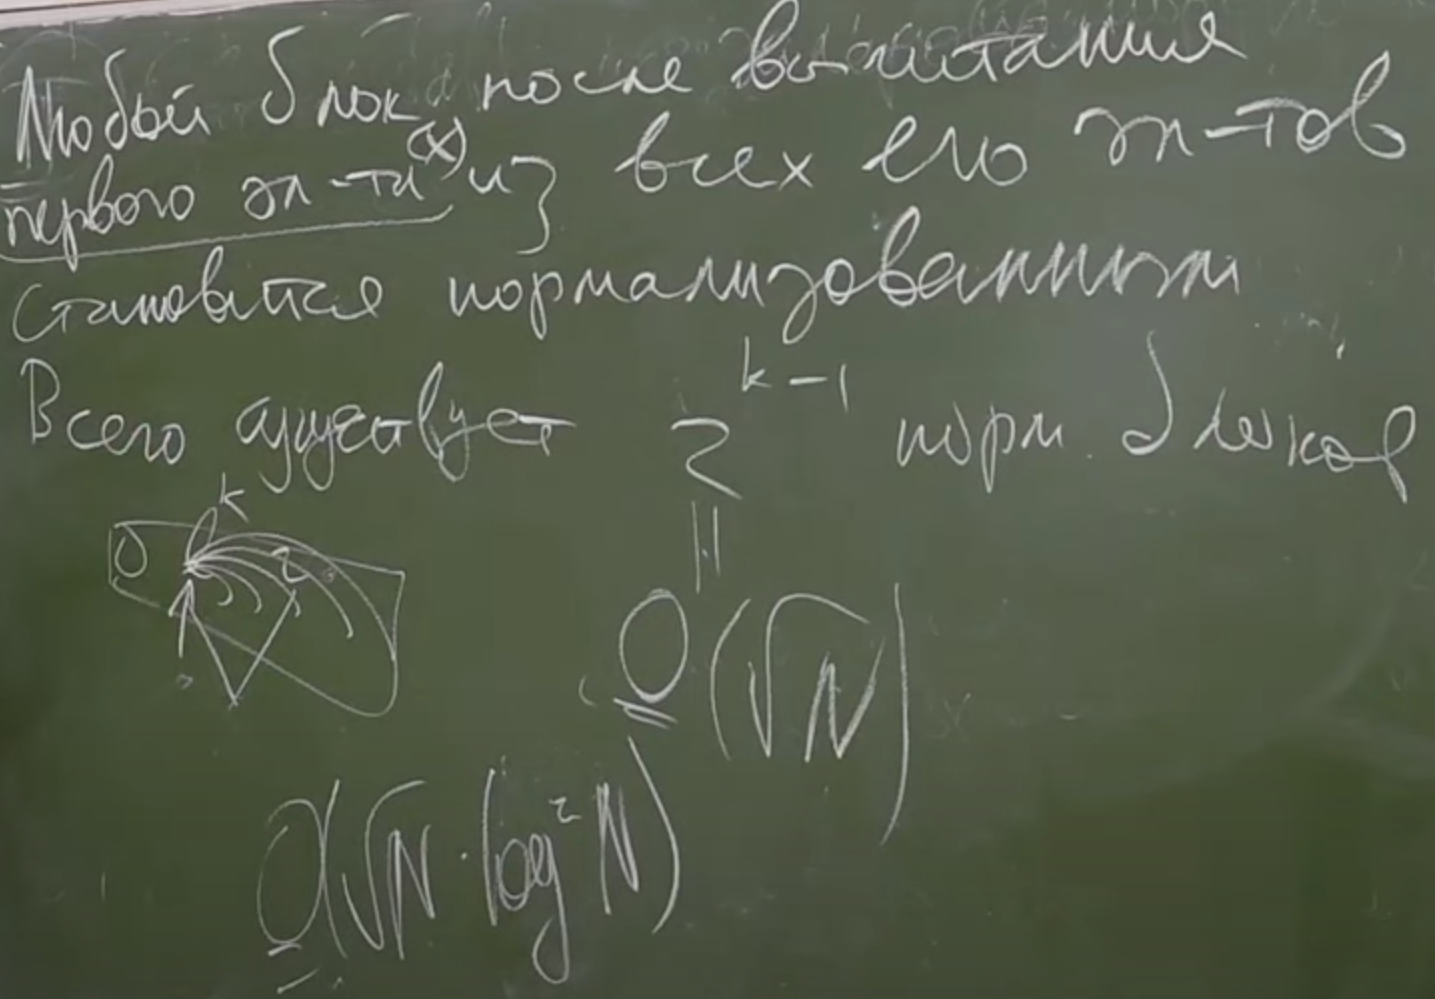 Любой блок после вычитания
первого эл-та (x) из всех его эл-тов
становится нормализованным
Всего существует 2^{k-1} норм. блоков
k
0
||
O(√N)
O(√N · log² N)